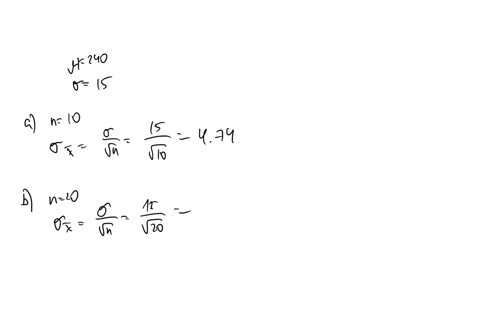 μ=240
σ=15
a) n=10
σx̄ = σ/√n = 15/√10 = 4.74
b) n=20
σx̄ = σ/√n = 15/√20 =